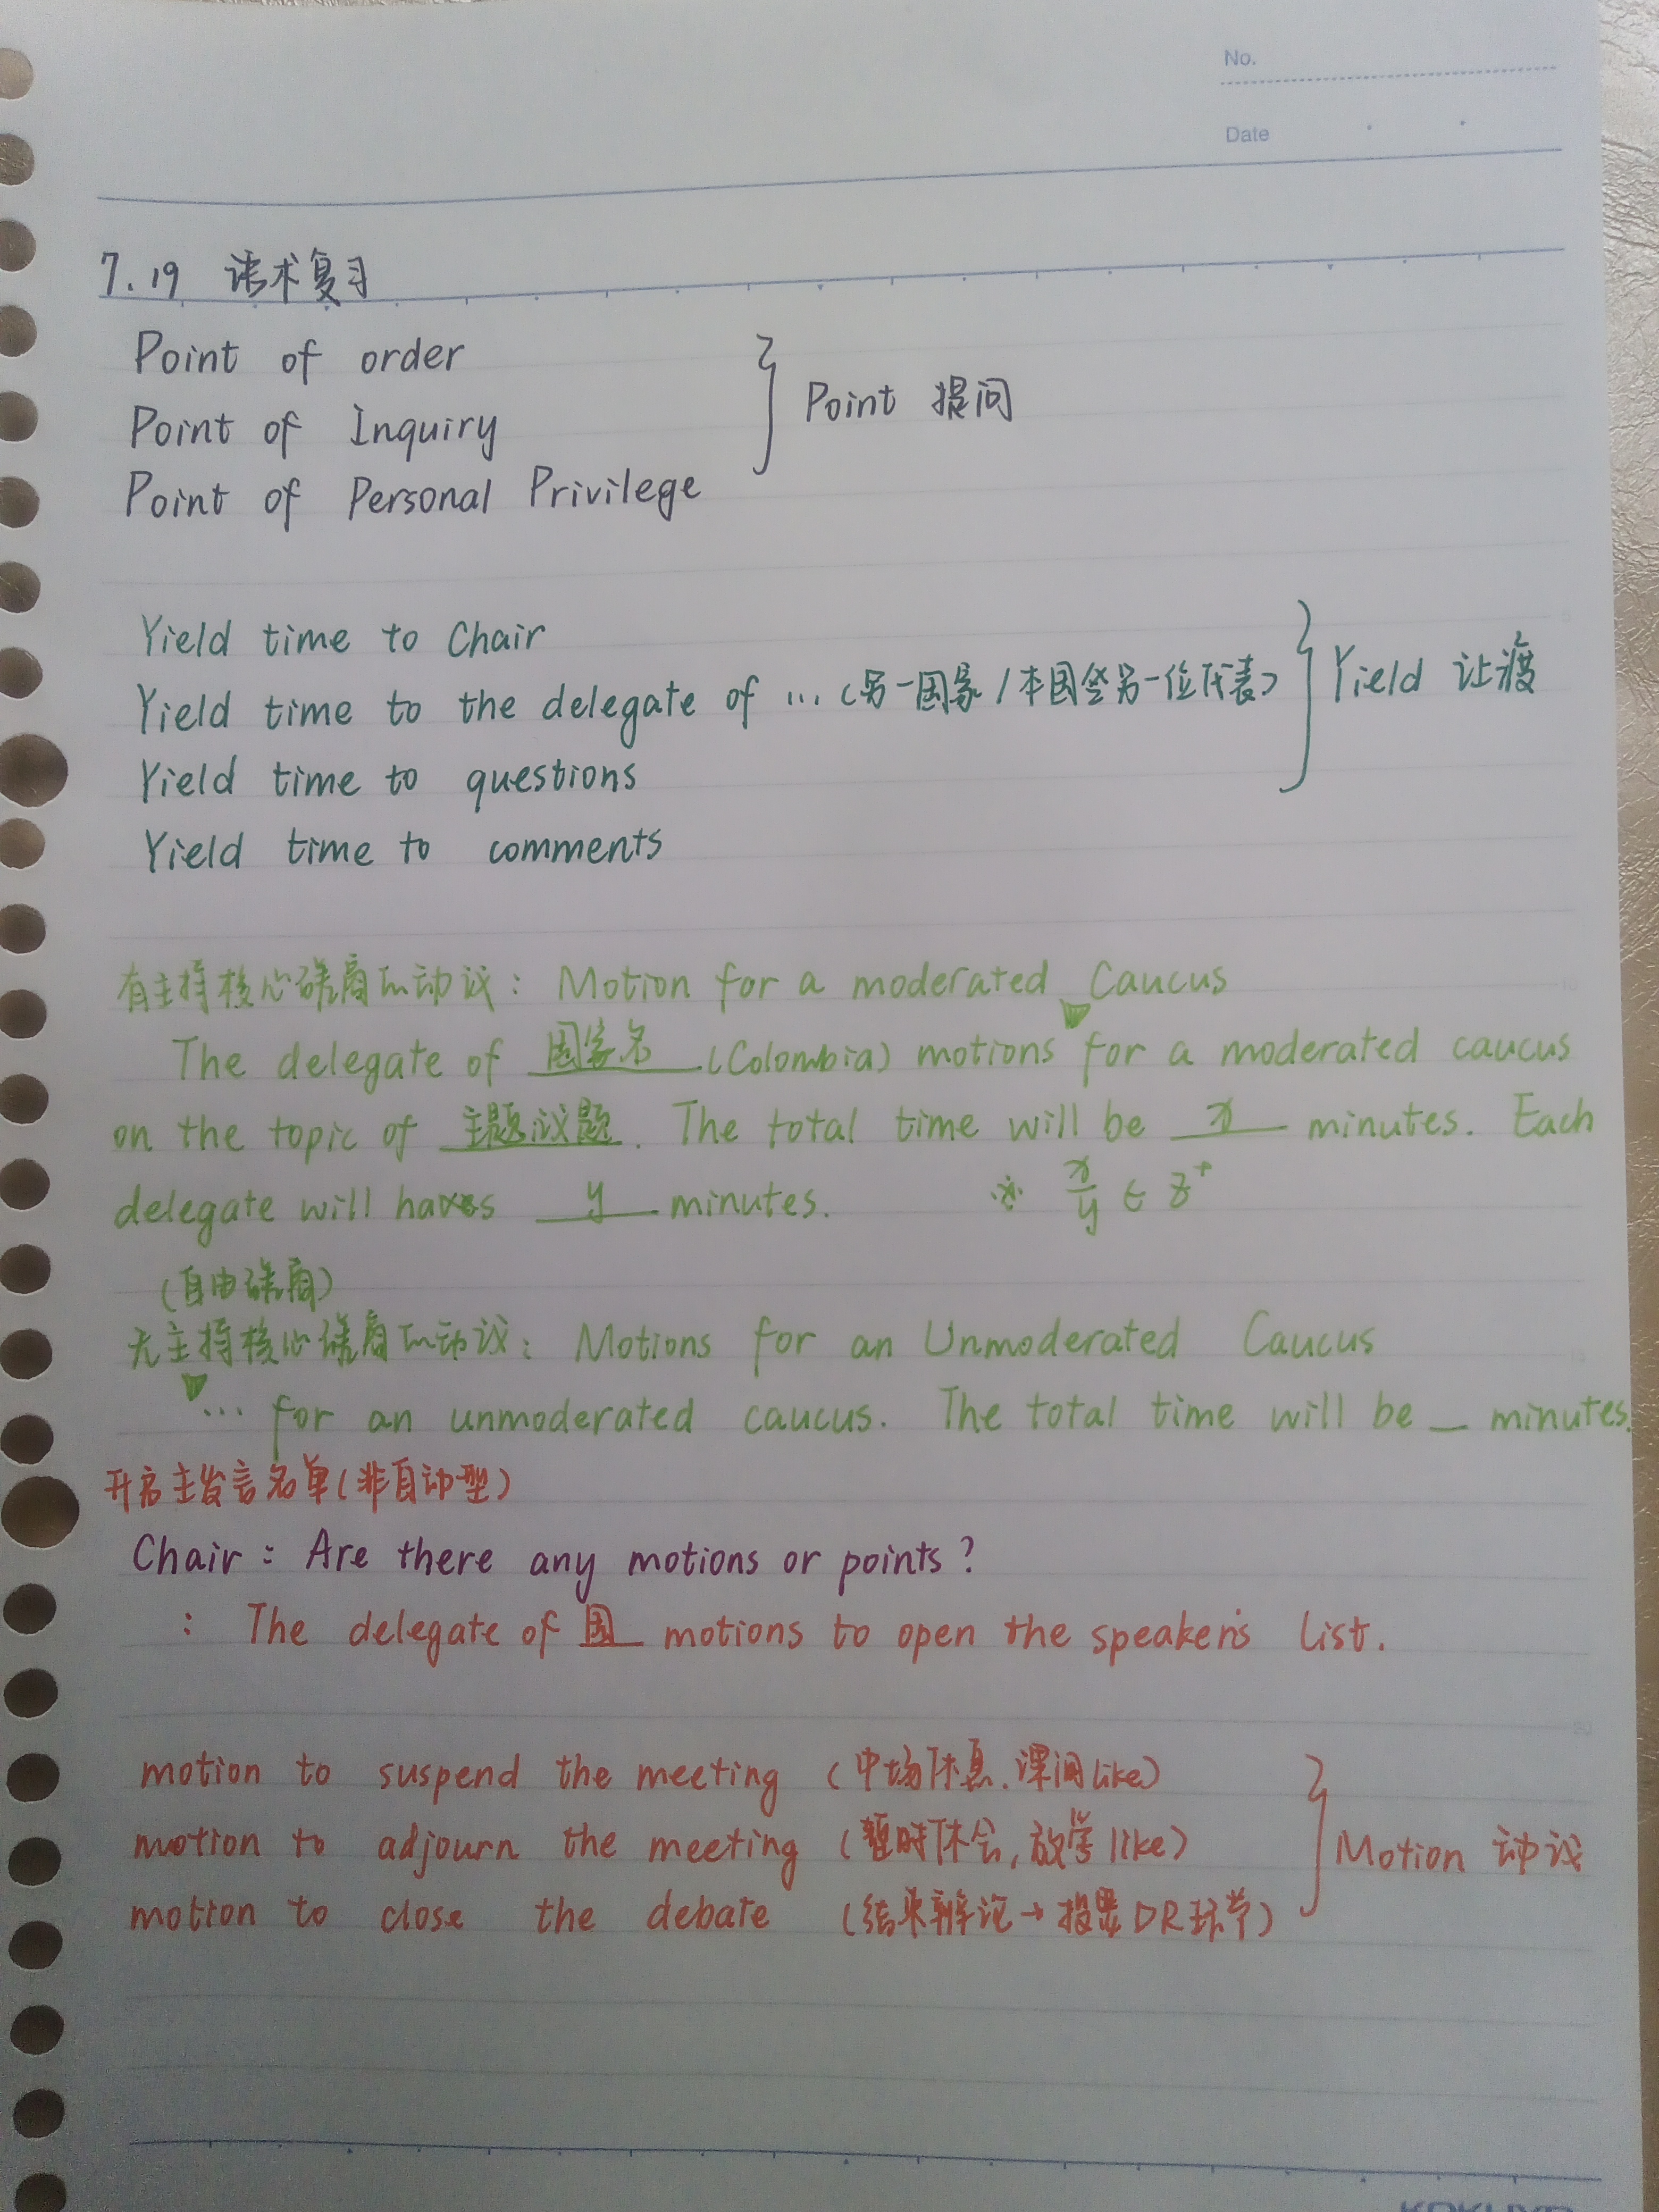 No.
Date
7.19 话术复习
Point of order
Point of Inquiry
Point of Personal Privilege
Point 提问
Yield time to Chair
Yield time to the delegate of ... (另一国家/本国籍另一位代表)
Yield time to questions
Yield time to comments
Yield 让渡
有主持核心磋商的动议: Motion for a moderated Caucus
The delegate of 国家名 (Colombia) motions for a moderated caucus
on the topic of 主题议题. The total time will be x minutes. Each
delegate will have y minutes. ※ x/y ∈ Z⁺
(自由磋商)
无主持核心磋商的动议: Motions for an Unmoderated Caucus
... for an unmoderated caucus. The total time will be _ minutes.
开启主发言名单(非自动型)
Chair: Are there any motions or points?
: The delegate of 国 motions to open the speaker's list.
motion to suspend the meeting (中场休息.课间like)
motion to adjourn the meeting (暂时休会,放学like)
motion to close the debate (结束辩论→投票DR环节)
Motion 动议
KOKUYO